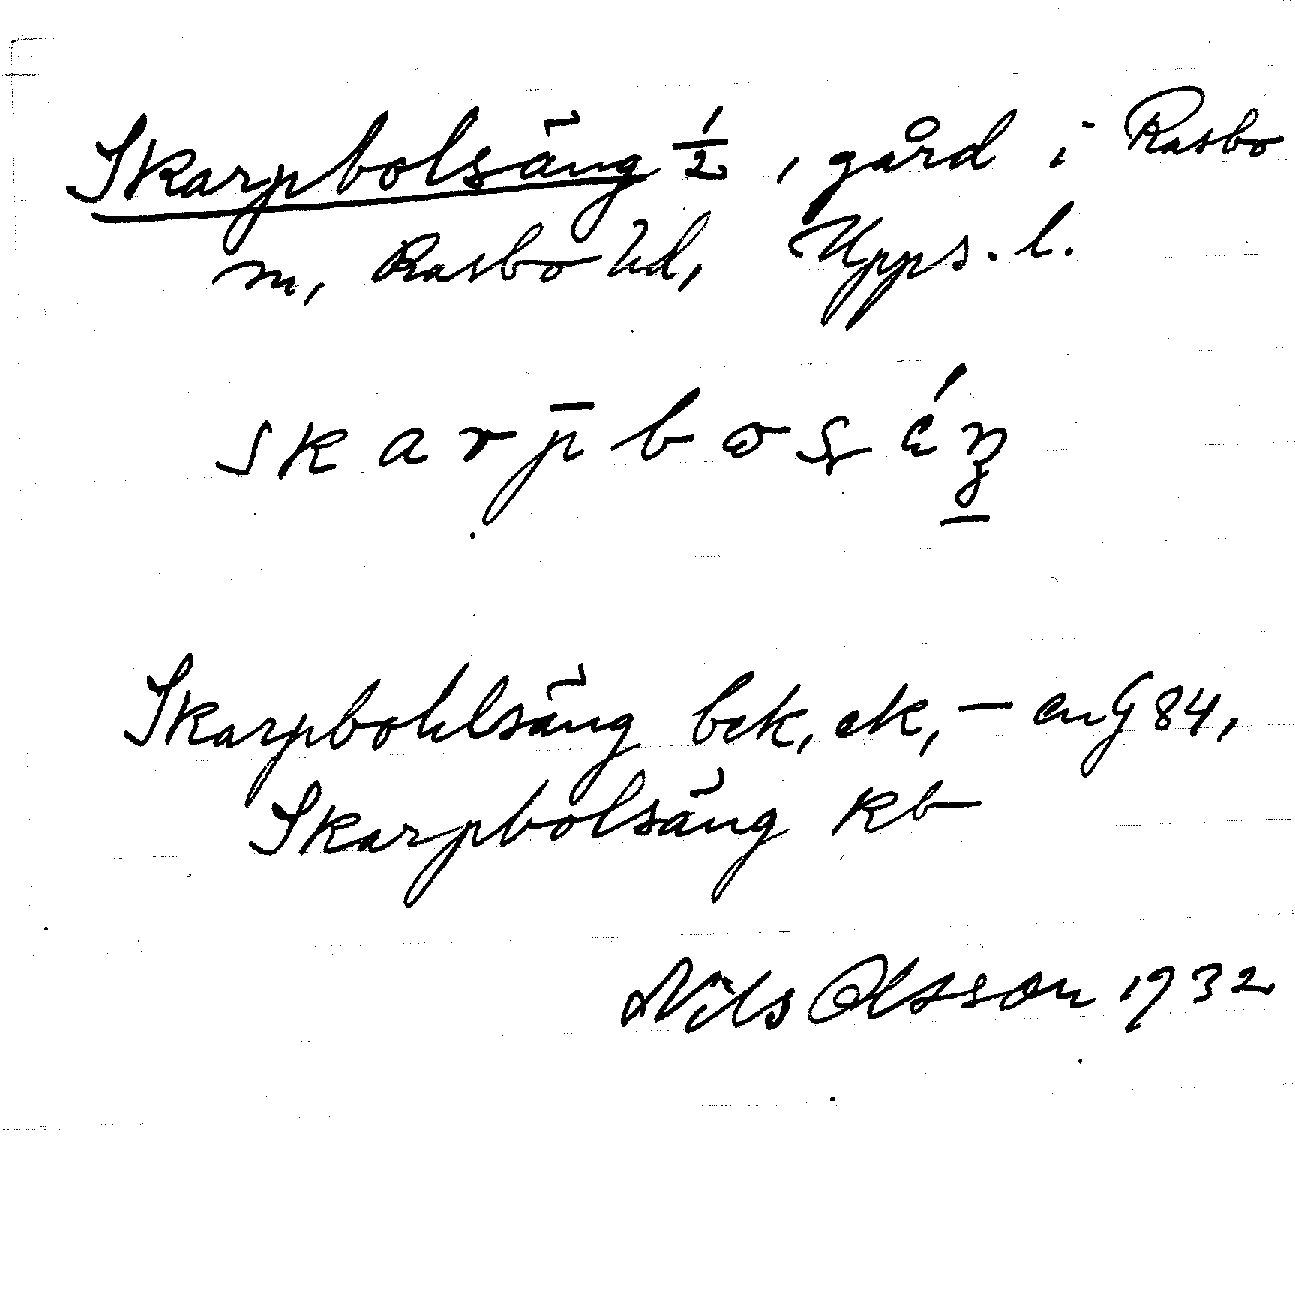 Skarpbolsäng 1/2, gård i Rasbo
sn, Rasbo hd, Upps. l.
Skarpbohlsäng bek, ek, — en G 84,
Skarpbolsäng kb
Nils Olsson 1932